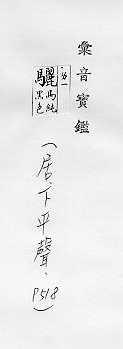 彙音寶鑑
驪 馬純黑色
（居下平聲，P518）